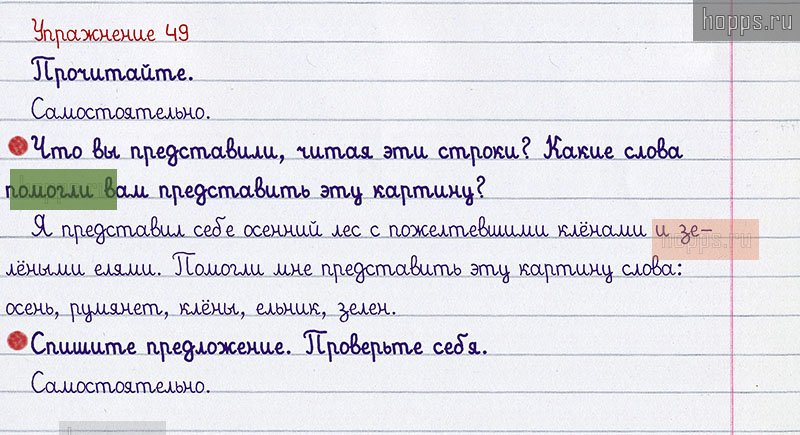 hopps.ru
Упражнение 49
Прочитайте.
Самостоятельно.
Что вы представили, читая эти строки? Какие слова
помогли вам представить эту картину?
Я представил себе осенний лес с пожелтевшими клёнами и зе-
hopps.ru
лёными елями. Помогли мне представить эту картину слова:
осень, румянет, клёны, ельник, зелен.
Спишите предложение. Проверьте себя.
Самостоятельно.